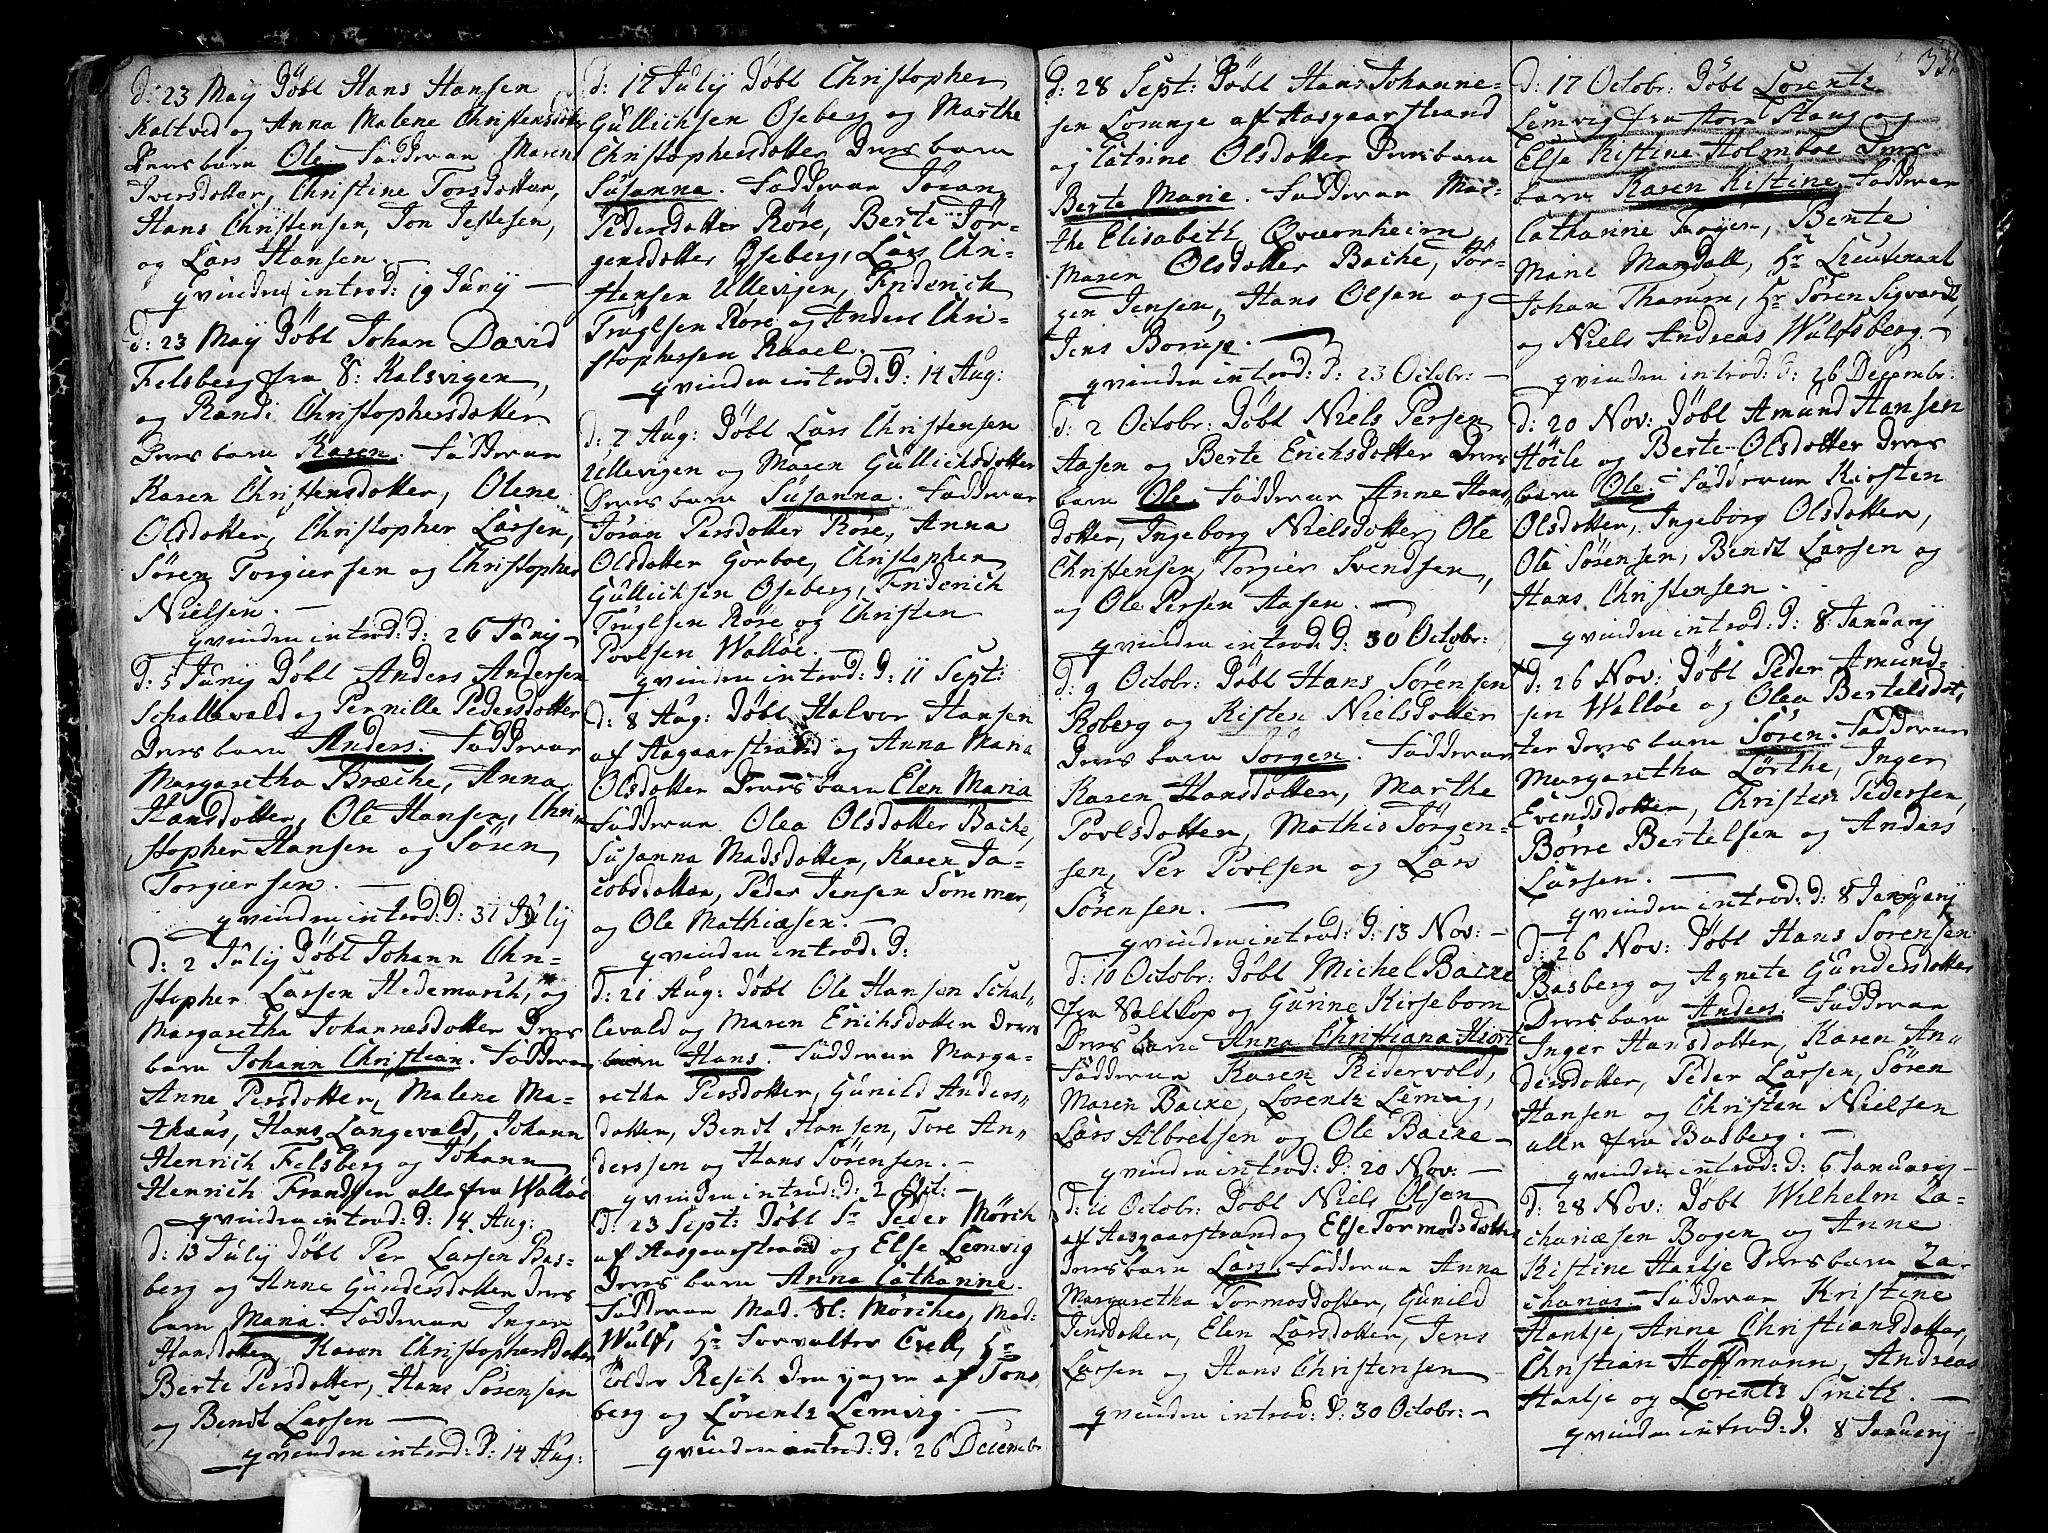 d: 23 Maÿ Döbt Hans Hansen
Kaltved og Anna Malene Christensdotter
Deres barn Ole. Fadderne Maren
Iversdotter, Christine Torsdotter,
Hans Christensen, Jon
og Lars Hansen. —
qvinden introd: 19 Junÿ —
d: 23 Maÿ Döbt Johan David
Felsberg fra S: Kalsvigen,
og Randi Christophersdotter
Deres barn Karen. Fadderne
Karen Christensdotter, Olene
Olsdotter, Christopher Larsen,
Sören Torgiersen og Christopher
Nielsen. —
qvinden introd: d: 26 Junÿ —
d: 5 Junÿ Döbt Anders Andersen
Schallevald og Pernille Pedersdotter
Deres barn Anders. Fadderne
Margaretha Bræche, Anna
Hansdotter, Ole Hansen, Chri„
stopher Hansen og Sören
Torgiersen. —
qvinden introd: d: 31 Julÿ
d: 2 Julÿ Döbt Johann Chri-
stopher Larsen Hedemarch, og
Margaretha Johannesdotter Deres
barn Johann Christian. Fadderne
Anne Persdotter, Malene Ma-
thæus, Hans Langevald, Johann
Henrich Felsberg og Johann
Henrich Frandsen alle fra Walløe
qvinden introd: d: 14 Aug:
d: 13 Julÿ Döbt Per Larsen Bas-
berg og Anne Gundersdotter Deres
barn Maria. Fadderne Inger
Hansdotter, Karen Christophersdotter
Berte Persdotter, Hans Sörensen
og Bendt Larsen —
qvinden introd: d: 14 Aug:
d: 17 Julÿ Döbt Christopher
Gullichsen Oseberg og Marthe
Christophersdotter Deres barn
Susanna. Fadderne Jöran
Pedersdotter Röre, Berte Jör-
gensdotter Oseberg, Lars Chri-
stensen Ullevigen, Friderich
Trugelsen Röre og Anders Chri-
stophersen Raael. —
qvinden introd: d: 14 Aug:
d: 7 Aug: Döbt Lars Christensen
Ullevigen og Maren Gullichsdotter
Deres barn Susanna. Fadderne
Jöran Persdotter Röre, Anna
Olsdotter Gorboe, Christopher
Gullichsen Oseberg, Friderich
Trugelsen Röre og Christen
Povlsen Walløe.
qvinden introd: d: 11 Sept:
d: 8 Aug: Döbt Halvor Hansen
af Aagaarstrand og Anna Maria
Olsdotter Deres barn Elen Maria
Fadderne Olea Olsdotter Bache,
Susanna Madsdotter, Karen Ja-
cobsdotter, Peder Jensen Sommer,
og Ole Mathiæsen. —
qvinden introd: d:
d: 21 Aug: Döbt Ole Hansen Schal„
levald og Maren Erichsdotter Deres
barn Hans. Fadderne Marga-
retha Persdotter, Gunild Anders„
dotter, Bendt Hansen, Tore An„
derssen og Hans Sörensen. —
qvinden introd: d: 2 Oct: —
d: 23 Sept: Döbt Sr Peder Mörch
af Aasgaarstrand og Else Lemvig
Deres barn Anna Cathanne.
Fadderne Mad. Sl: Mörches, Mad:
Wulf, Hr Forvalter Crell, Hr
Resch den yngre af Tons
berg og Lorentz Lemvig. —
qvinden introd: d: 26 Decembr
d: 28 Sept: Döbt Hans Johanne-
sen Lorange af Aasgaarstrand
og Catrine Olsdotter Deres barn
Berte Marie. Fadderne Mar-
the Elisabeth Qvarnheim,
Maren Olsdotter Bache, Jör-
gen Jensen, Hans Olsen og
Jens Borup. —
qvinden introd: d: 23 Octobr: —
d: 2 Octobr: Döbt Niels Persen
Aasen og Berte Erichsdotter Deres
barn Ole. Fadderne Anne Hans„
dotter, Ingeborg Nielsdotter, Ole
Christensen, Torgier Svendsen,
og Ole Persen Aasen. —
qvinden introd: d: 30 Octobr:
d: 9 Octobr: Döbt Hans Sörensen
Roberg og Kisten Nielsdotter
Deres barn Jörgen. Fadderne
Karen Hansdotter, Marthe
Povlsdotter, Mathis Jörgen-
sen, Per Povlsen og Lars
Sörensen. —
qvinden introd: d: 13 Nov: —
d: 10 Octobr: Döbt Michel Backe
fra Valløe og Gurine Kirsebom
Deres barn Anna Christiana Hiort
Fadderne Karen Ridervold,
Maren Backe, Lorentz Lemvig,
Lars Albretsen og Ole Backe —
qvinden introd: d: 20 Nov: —
d: 11 Octobr: Döbt Niels Olsen
af Aasgaarstrand og Else Tormodsdotter
Deres barn Lars. Fadderne Anna
Margaretha Tormosdotter, Gunild
Jensdotter, Elen Larsdotter, Jens
Larsen og Hans Christensen
qvinden introd: d: 30 Octobr: —
d: 17 Octobr: Döbt Lorentz
Lemvig fra Horn Haug og
Else Kistine Holmboe Deres
barn Karen Kistine. Fadderne
Cathanne Trojen, Bente
Marie Mandall, Hr Lieutenant
Johan Tharum, Hr Sören Sigvardt,
og Niels Andreas Wulfsberg. —
qvinden introd: d: 26 Decembr:
d: 20 Nov: Döbt Amund Hansen
Höile og Berte Olsdotter Deres
barn Ole. Fadderne Kirsten
Olsdotter, Ingeborg Olsdotter,
Ole Sörensen, Bendt Larsen og
Hans Christensen.
qvinden introd: d: 8 Januarÿ
d: 26 Nov: Döbt Peder Amund-
sen Walløe og Olea Bertelsdot„
ter Deres barn Sören. Fadderne
Margaretha Lörthe, Inger
Evendsdotter, Christen Pedersen,
Börre Bertelsen og Anders
Larsen. —
qvinden introd: d: 8 Januarÿ
d: 26 Nov: Döbt Hans Sörensen
Basberg og Agnete Gundersdotter
Deres barn Anders. Fadderne
Inger Hansdotter, Karen An„
dersdotter, Peder Larsen, Sören
Hansen og Christen Nielsen
alle fra Basberg. —
qvinden introd: d: 6 Januarÿ —
d: 28 Nov: Döbt Wilhelm Za-
chariæsen Bogen og Anne
Kistine Hartje Deres barn Za-
charias. Fadderne Kristine
Hartje, Anne Christiansdotter,
Christian Hoffmann, Andreas
Hartje og Lorentz Smith. —
qvinden introd: d. 8 Januarÿ